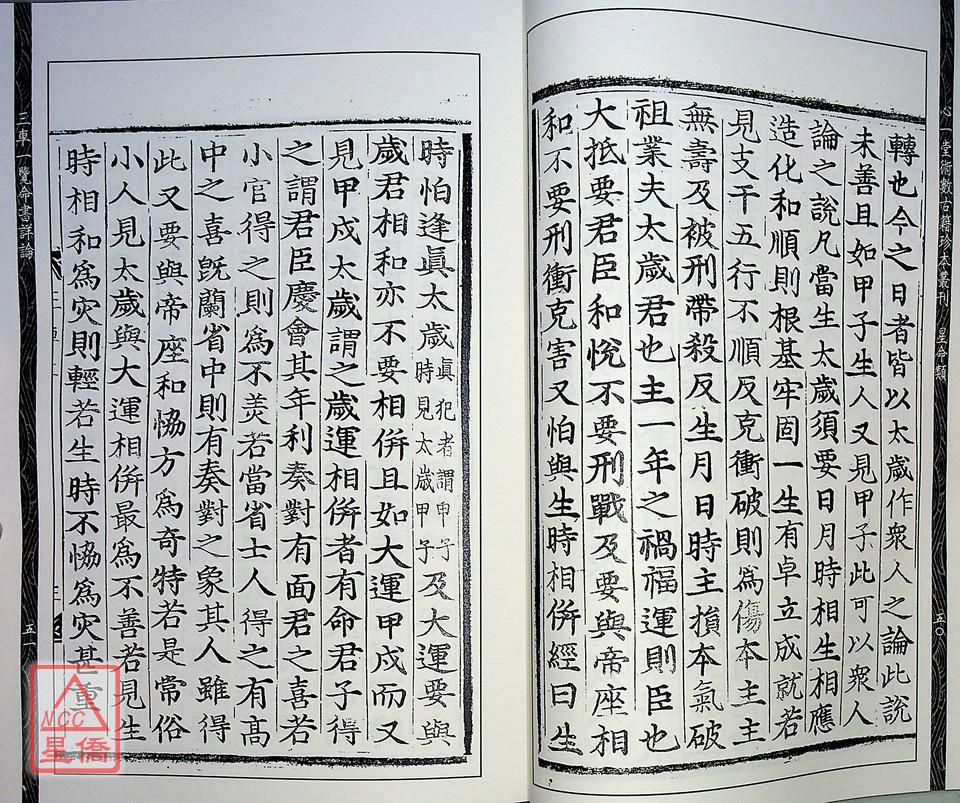 心一堂術數古籍珍本叢刊 星命類
五〇
轉也今之日者皆以太歲作衆人之論此說
未善且如甲子生人又見甲子此可以衆人
論之說凡當生太歲須要日月時相生相應
造化和順則根基牢固一生有卓立成就若
見支干五行不順反克衝破則爲傷本主主
無壽及被刑帶殺反生月日時主損本氣破
祖業夫太歲君也主一年之禍福運則臣也
大抵要君臣和悅不要刑戰及要與帝座相
和不要刑衝克害又怕與生時相併經曰生
時怕逢眞太歲眞犯者謂甲子時見太歲甲子及大運要與
歲君相和亦不要相併且如大運甲戍而又
見甲戍太歲謂之歲運相併者有命君子得
之謂君臣慶會其年利奏對有面君之喜若
小官得之則爲不羙若當省士人得之有髙
中之喜旣蘭省中則有奏對之象其人雖得
此又要與帝座和恊方爲奇特若是常俗
小人見太歲與大運相併最爲不善若見生
時相和爲灾則輕若生時不恊爲灾甚重
三車一覽命書詳論
五一
MCC
星僑